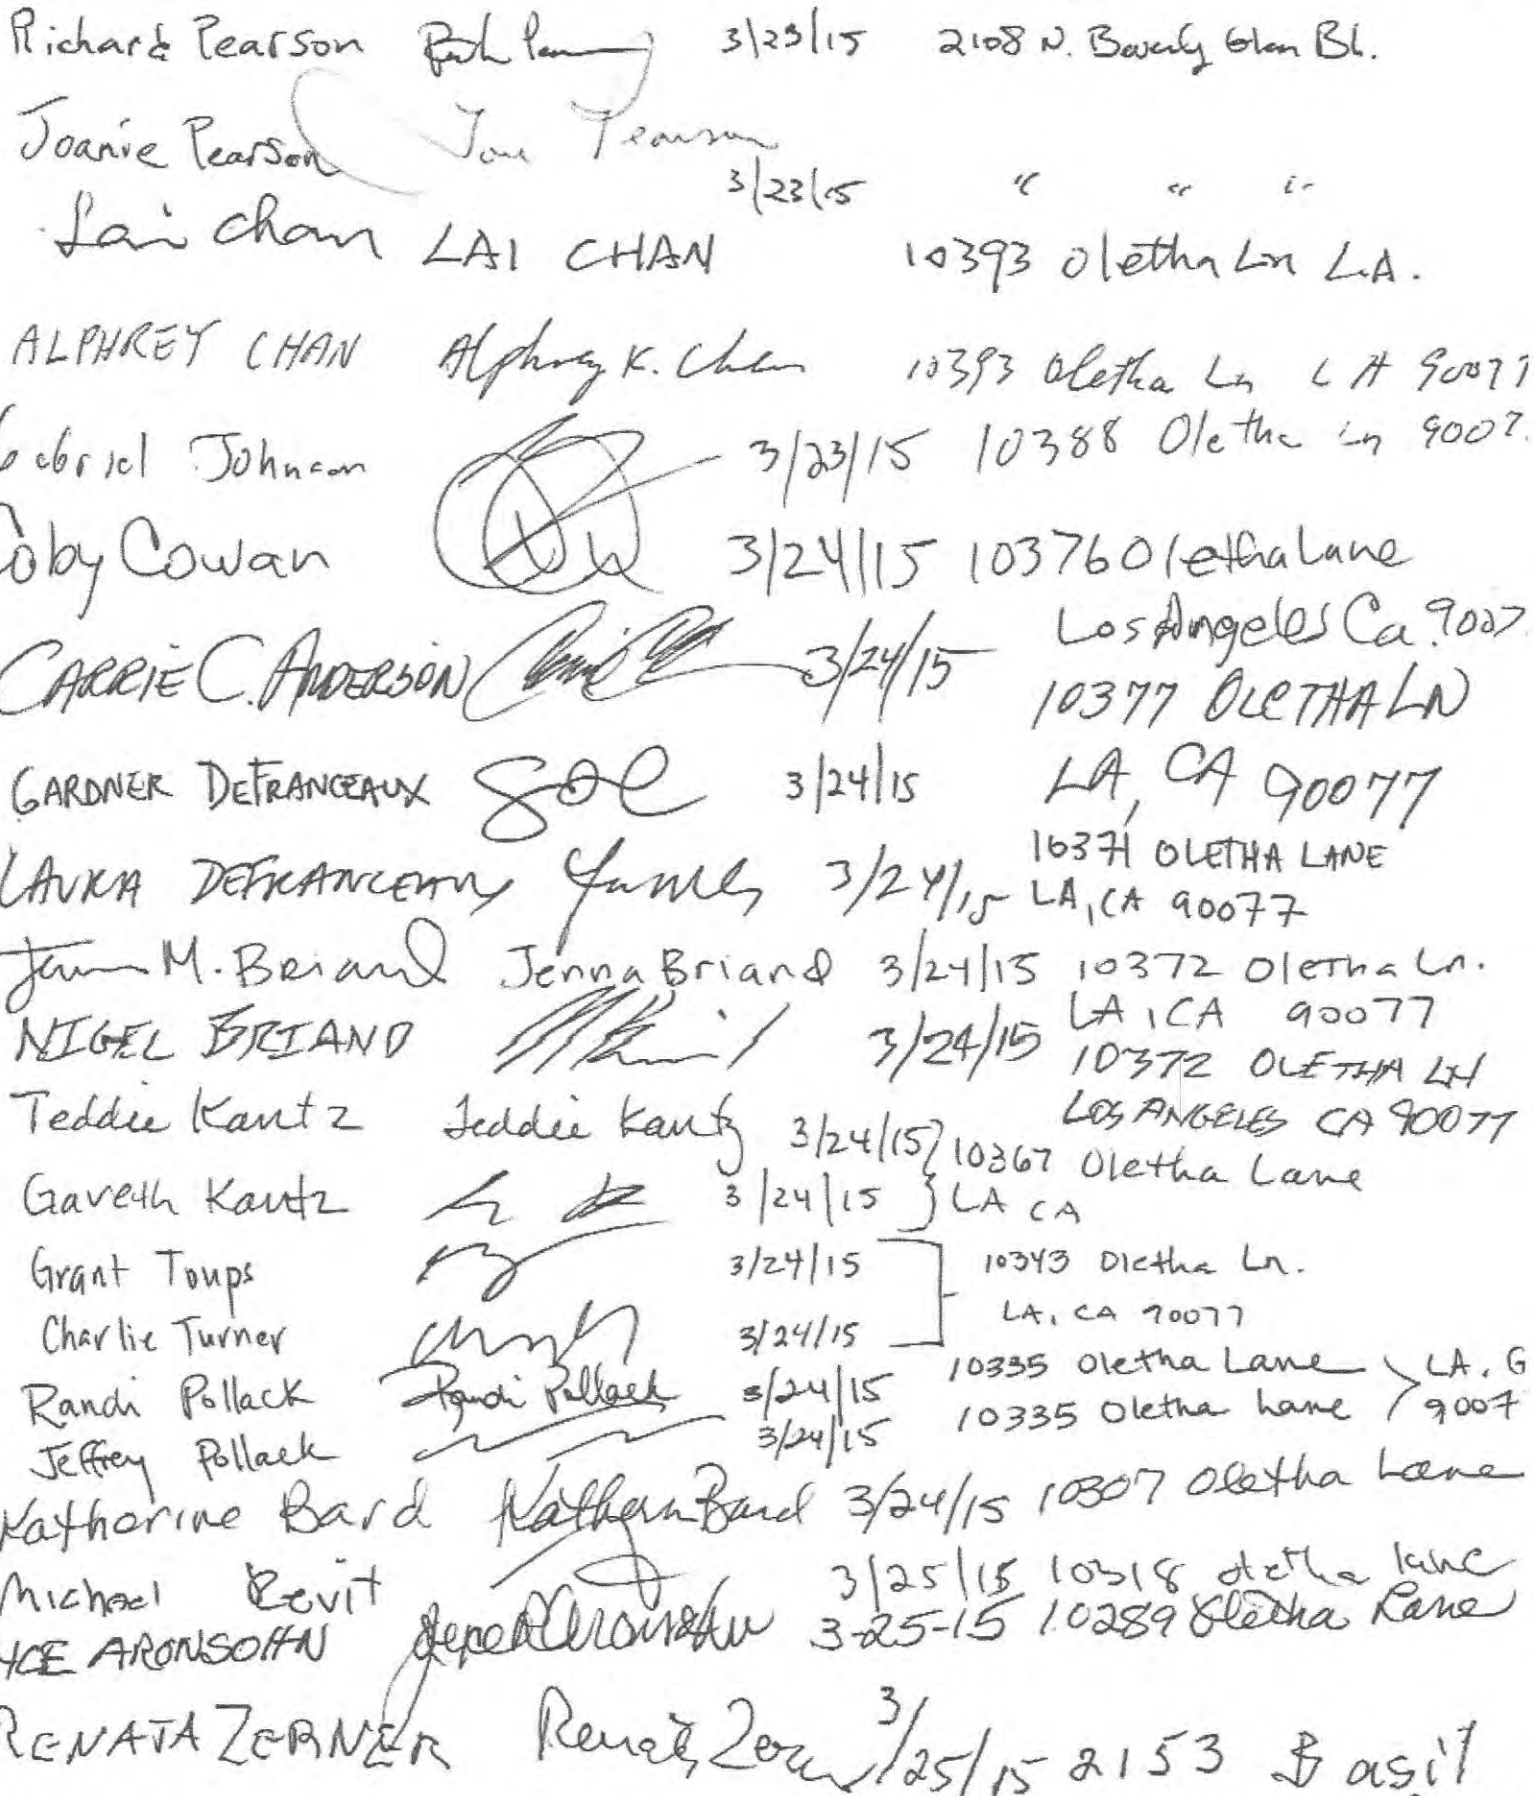 Richard Pearson 3/23/15 2108 N. Beverly Glen Bl.
Joanie Pearson Joan Pearson
3/23/15 " " "
Lai Chan LAI CHAN 10393 Oletha Ln L.A.
ALPHREY CHAN Alphrey K. Chan 10393 Oletha Ln LA 90077
Gabriel Johnson 3/23/15 10388 Oletha Ln 9007
Coby Cowan 3/24/15 10376 Oletha Lane
Los Angeles Ca. 9007
CARRIE C. ANDERSON 3/24/15 10377 OLETHA LN
LA, CA 90077
GARDNER DEFRANCEAUX 3/24/15
10371 OLETHA LANE
LAURA DEFRANCEAUX 3/24/15 LA, CA 90077
M. Briand Jenna Briand 3/24/15 10372 Oletha Ln.
LA, CA 90077
NIGEL BRIAND 3/24/15 10372 OLETHA LN
LOS ANGELES CA 90077
Teddie Kantz Teddie Kantz 3/24/15 } 10367 Oletha Lane
Gareth Kantz 3/24/15 } LA CA
Grant Toups 3/24/15 10343 Oletha Ln.
LA, CA 90077
Charlie Turner 3/24/15
Randi Pollack Randi Pollack 3/24/15 10335 Oletha Lane LA.
Jeffrey Pollack 3/24/15 10335 Oletha Lane 9007
Katherine Bard Katherine Bard 3/24/15 10307 Oletha Lane
Michael Revit 3/25/15 10318 Oletha lane
YCE ARONSOHN 3-25-15 10289 Oletha Lane
RENATA ZERNER Renata Zerner 3/25/15 2153 Basil